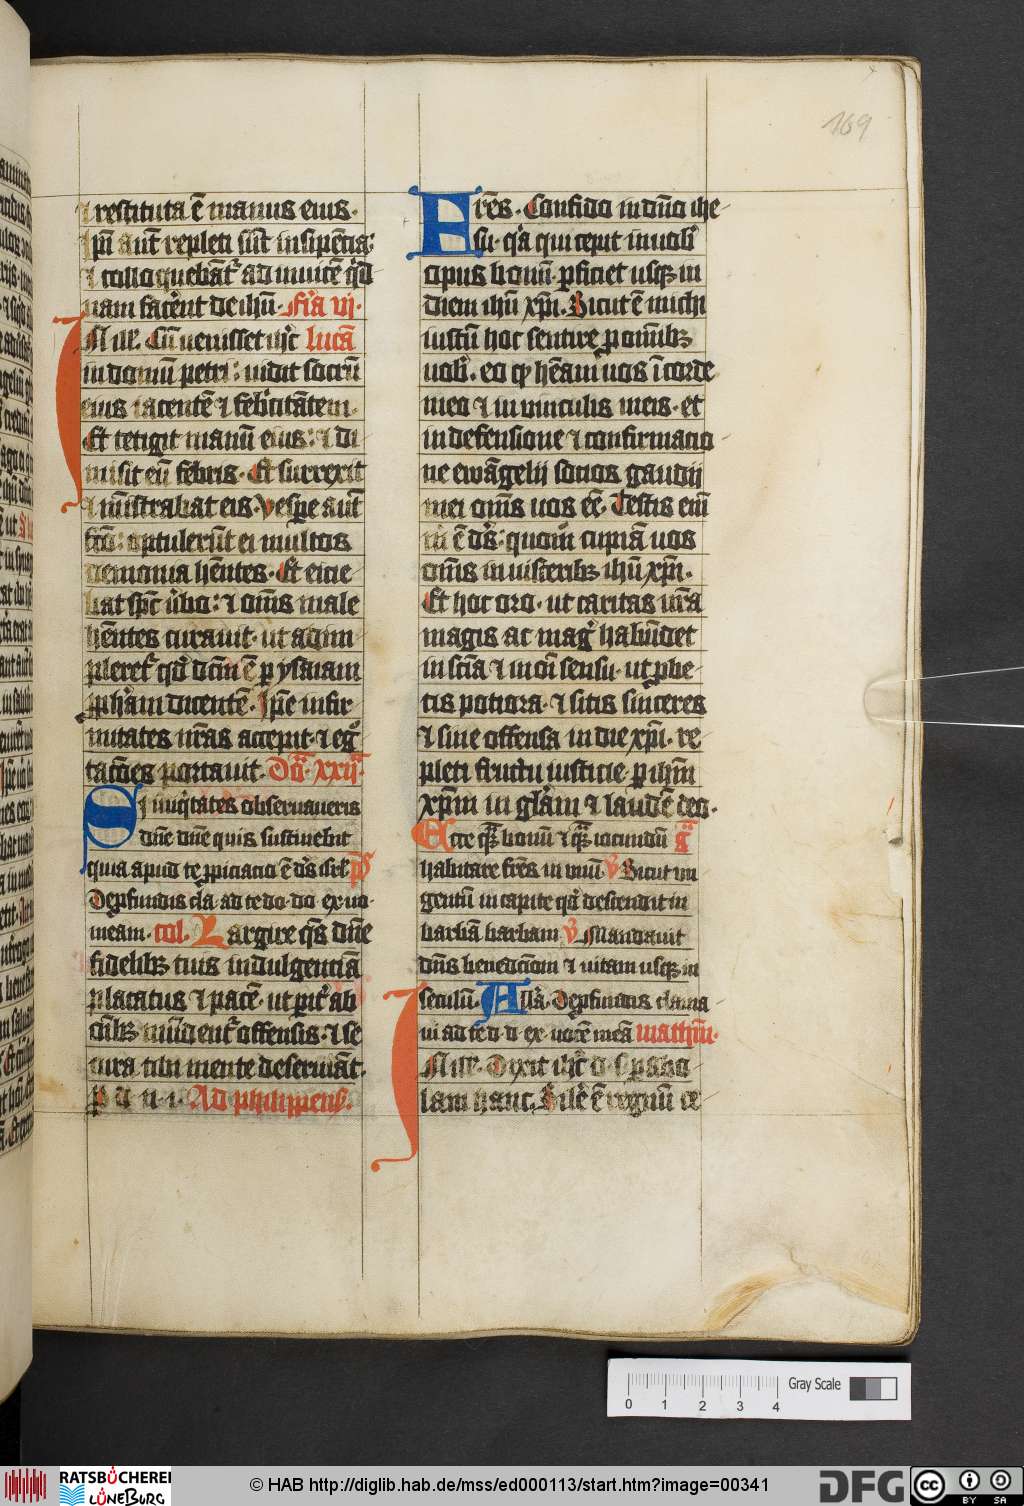 169
⁊ restituta ē manus eius·
Jpi aut̄ repleti sūt insipiētia:
⁊ colloquebāt᷑ ad inuicē qͥd
nam facēnt de ihū· Fiͣa vj·
IN illꝭ. Cū venisset ihc̄ lucā
in domū petri: uidit socrū
eius iacentē ⁊ febͥcitātem·
Et tetigit manū eius: ⁊ di
misit eū febris· Et surrexit
⁊ mīstrabat eis· Vespe aut̄
fcō: optulerūt ei multos
demonia hn̄tes· Et eicie
bat spc̄ ūbo: ⁊ oīns male
hn̄tes curauit· ut adim
pleret᷑ qd̓ dcm̄ ē p ysaiam
pph̄am dicentē· Jpē infir
mitates nr̄as accepit· ⁊ eg̊
tacōes portauit· Doͣ xxijͣ
Si iniqͥtates obseruaueris
dn̄e dn̄e quis sustinebit
quia apud te ꝓpiciacio ē ds̄ isrl̄ pͫ
De ꝓfundis cla· ad te do· do· ex· uo·
meam· col. Largire qs̄ dn̄e
fidelibꝫ tuis indulgenciā
placatus ⁊ pacē· ut pit̓ ab
oībꝫ mūdent᷑ offensis· ⁊ se
cura tibi mente deseruiāt·
p d· n· i· Ad philippens̄·
Frēs· Confido in dn̄o ihe
su· qͥa qui cepit in uobͥ
opus bonū· ꝑficiet usqꝫ in
diem ihū xp̄i· Sicut ē michi
iustū hoc sentire p omībꝫ
uobͥ· eo qͩ hēam uos ī corde
meo ⁊ in uinculis meis· et
in defensione ⁊ confirmacio
ne ewāgelij socios gaudij
mei om̄s uos eē· Testis eni
m̄ ē ds̄: quōm cupiā uos
om̄s in uisceribꝫ ihū xp̄i·
Et hoc oro· ut caritas vr̄a
magis ac magͥ habūdet
in scīa ⁊ in oī sensu· ut ꝓbe
tis potiora· ⁊ sitis sinceres
⁊ sine offensa in die xp̄i· re
pleti fructu iusticie· p ihm̄
xpm̄ in glām ⁊ laudē deo·
Ecce qͣ bonū ⁊ qͣ iocundū gͣ
habitare frēs in vnū ℣ Sicut vn
gentū in capite qd̓ descendit in
barbā barbam ℣ Mandauit
dn̄s benedicc̄om ⁊ uitam usqꝫ in
seculū· Allā· De ꝓfundis clama
ui ad te d· d· ex· uocē meā mathm̄·
IN illꝭ. Dixit ihc̄ d· s· paba
lam hanc· Sile̓ ē regnū ce
Gray Scale
0 1 2 3 4
RATSBÜCHEREI
LÜNEBURG
© HAB http://diglib.hab.de/mss/ed000113/start.htm?image=00341
DFG
cc BY SA